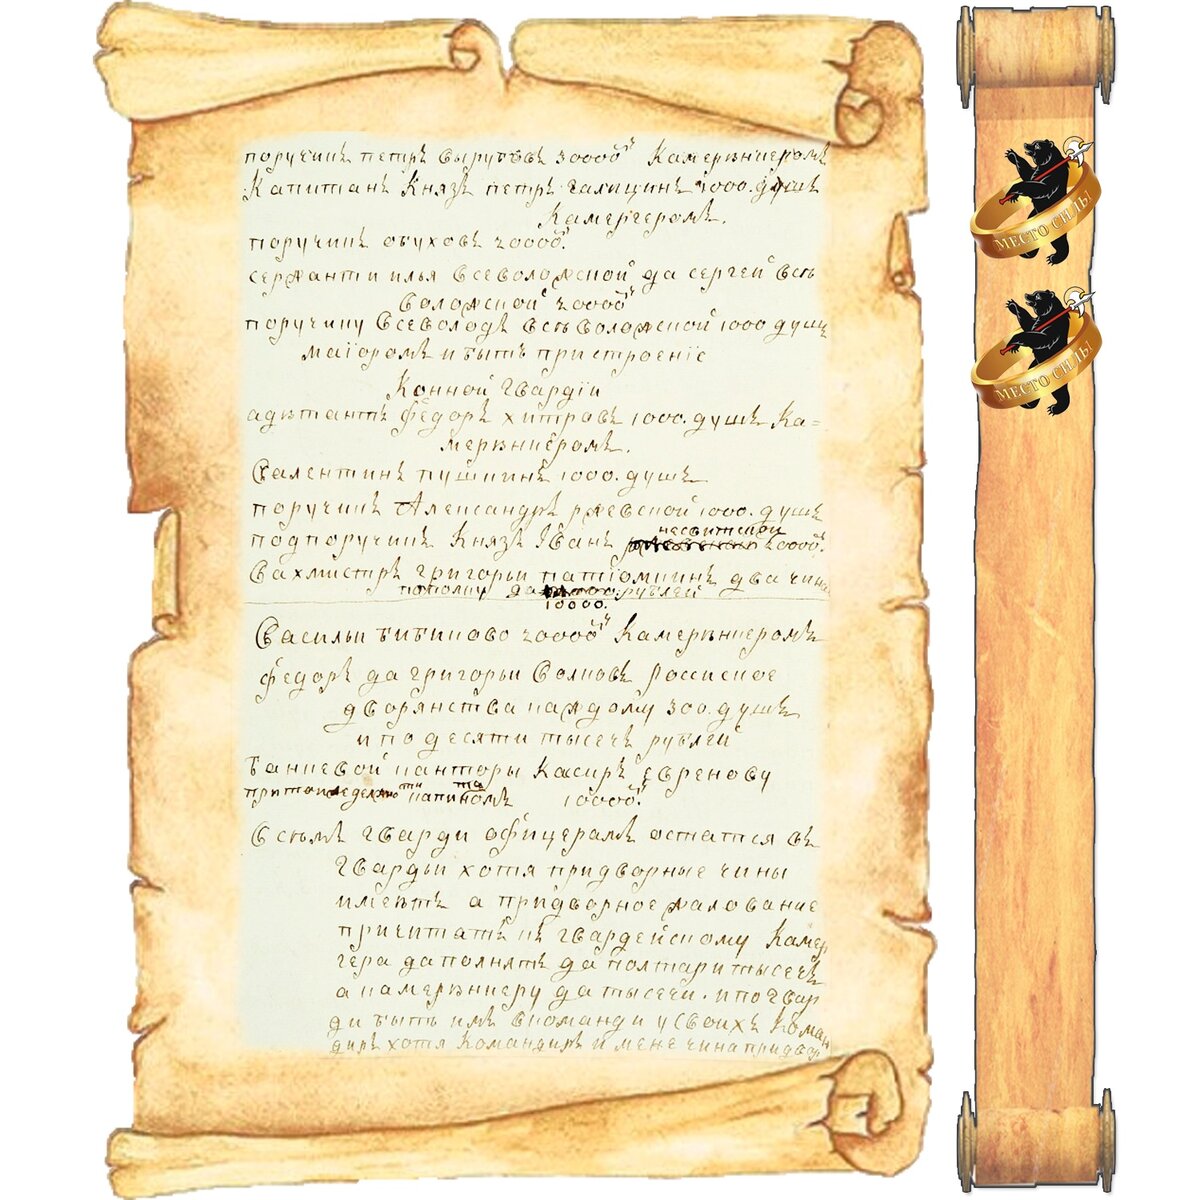 поручикъ петръ вырубовъ 20000р камеръюнкеромъ
Капитанъ Князь петръ галицинъ 1000. душъ
Камергеромъ.
поручикъ обуховъ 20000р
сержанти илья всеволожской да сергей всѣ
воложской 20000р
поручику всеволодъ всѣволожской 1000 душъ
маіоромъ и быть при строеніе
Конной Гвардіи
адютантъ Федоръ хитровъ 1000. душъ Ка=
меръюнкеромъ.
Валентинъ пушкинъ 1000. душъ
поручикъ Александръ ржевской 1000. душъ
подпоручикъ Князь Іванъ несвитской 20000р.
Вахмистръ григорьи патіомкинъ два чина
пополку да рублей
10000.
Васильи бибиково 20000р Камеръюнкеромъ
Федоръ да григорьи Волковъ Россиское
дворянства каждому 300. душъ
и по десяти тысечь рублей
банковой канторы Касиръ Евреинову
капитаномъ 10000р
Всѣмъ гварди офицерамъ остатся въ
гвардьи хотя придворные чины
имеютъ а придворное жалование
причитать къ гвардейскому Камер
гера дополнять да полтари тысечь
а камеръюнкеру да тысечи. и по гвар
ди быть имъ вкоманди у своихъ Коман
диръ хотя Командиръ и мене чина придвор
МЕСТО СИЛЫ
МЕСТО СИЛЫ